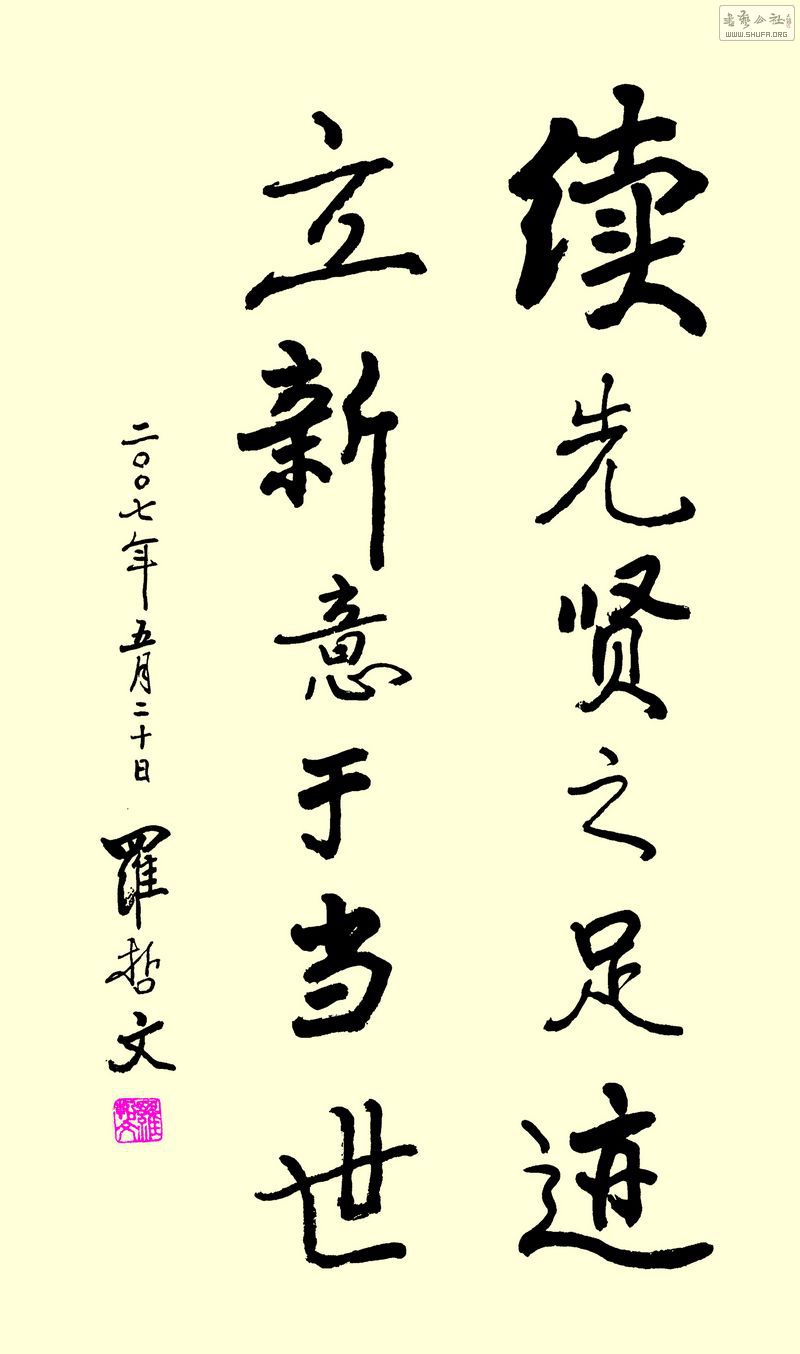 续先贤之足迹
立新意于当世
二〇〇七年五月二十日 羅哲文
書藝公社
WWW.SHUFA.ORG